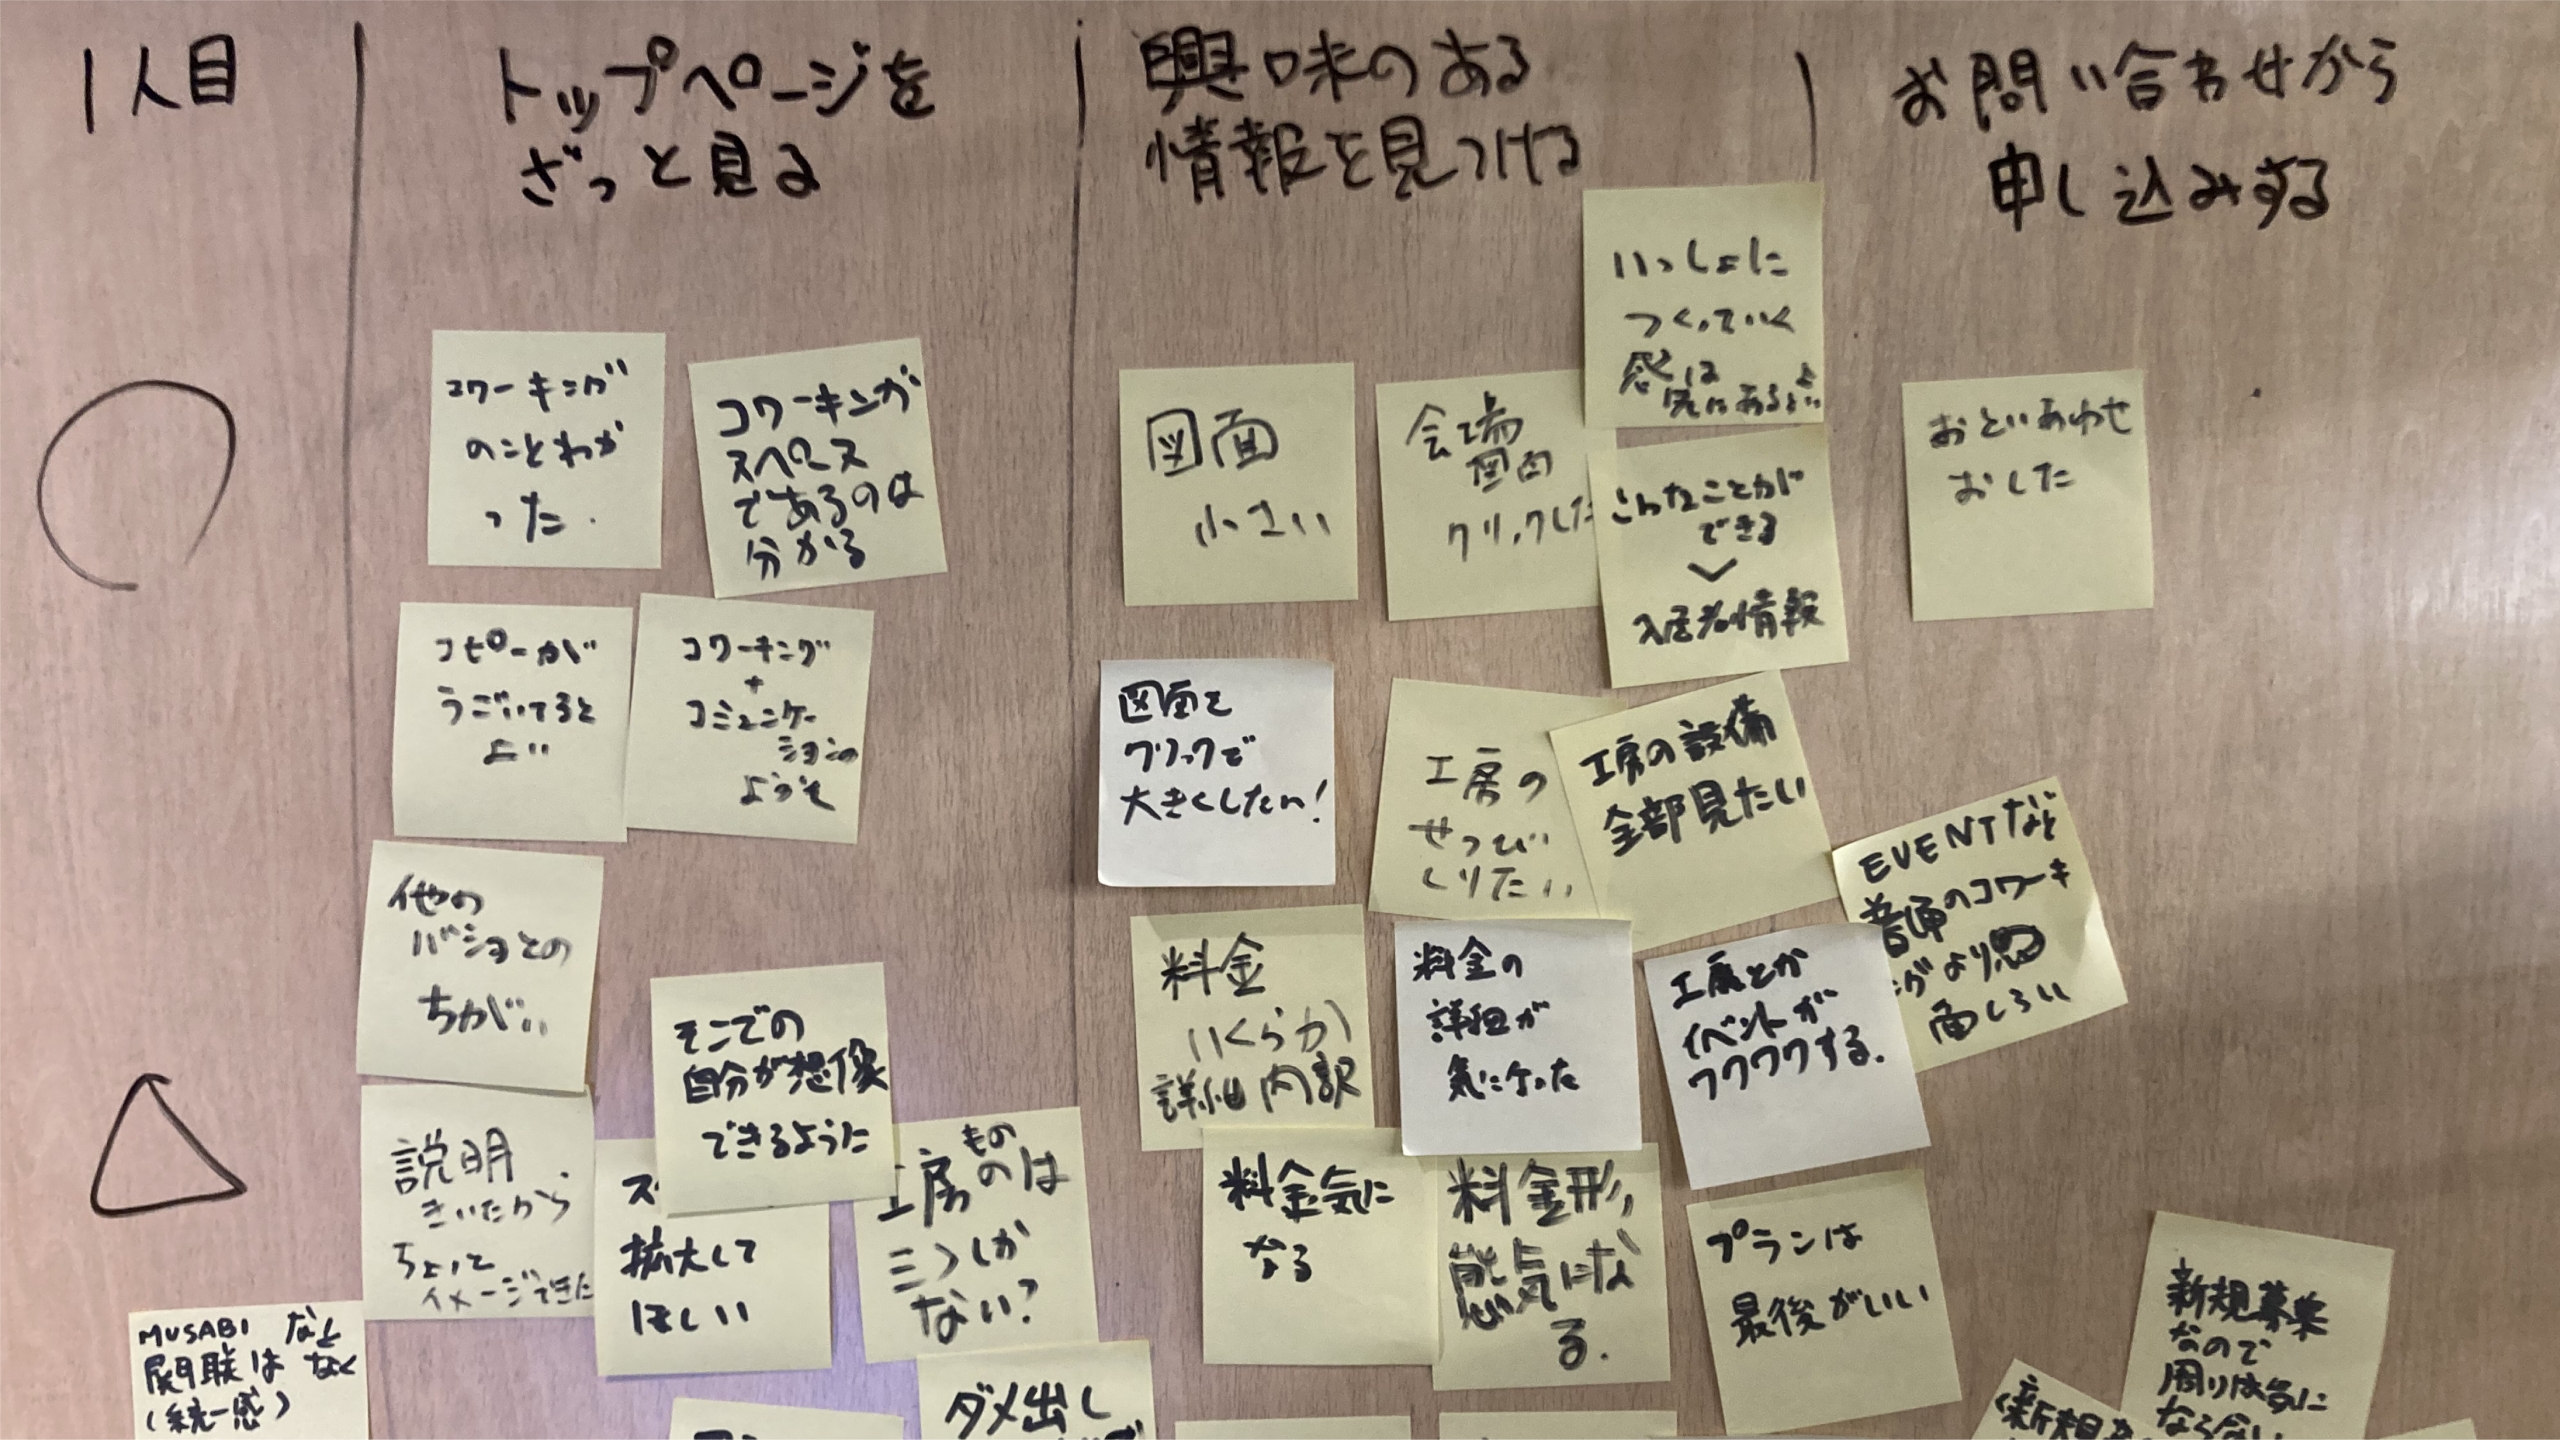 1人目
トップページを
ざっと見る
興味のある
情報を見つける
お問い合わせから
申し込みする
いっしょに
つくっていく
感は
気になるよい
コワーキング
のことわか
った.
コワーキング
スペース
であるのは
分かる
図面
小さい
会場
図面
クリックした
こんなことが
できる
入居者情報
おといあわせ
おした
コピーが
うごいてると
よい
コワーキング
+
コミュニケー
ションの
ようそ
図面を
クリックで
大きくしたい!
工房の
せつび
しりたい
工房の設備
全部見たい
EVENTなど
普通のコワーキ
ングより
面しろい
他の
バショとの
ちがい
そこでの
自分が想像
できるように
料金
いくらか
詳細内訳
料金の
詳細が
気になった
工房とか
イベントが
ワクワクする.
説明
きいたから
ちょっと
イメージできた
拡大して
ほしい
工房ものは
三つしか
ない?
料金気に
なる
料金形
態気にな
る.
プランは
最後がいい
MUSABI など
関联は なく
(統一感)
ダメ出し
新規募集
なので
周りは気に